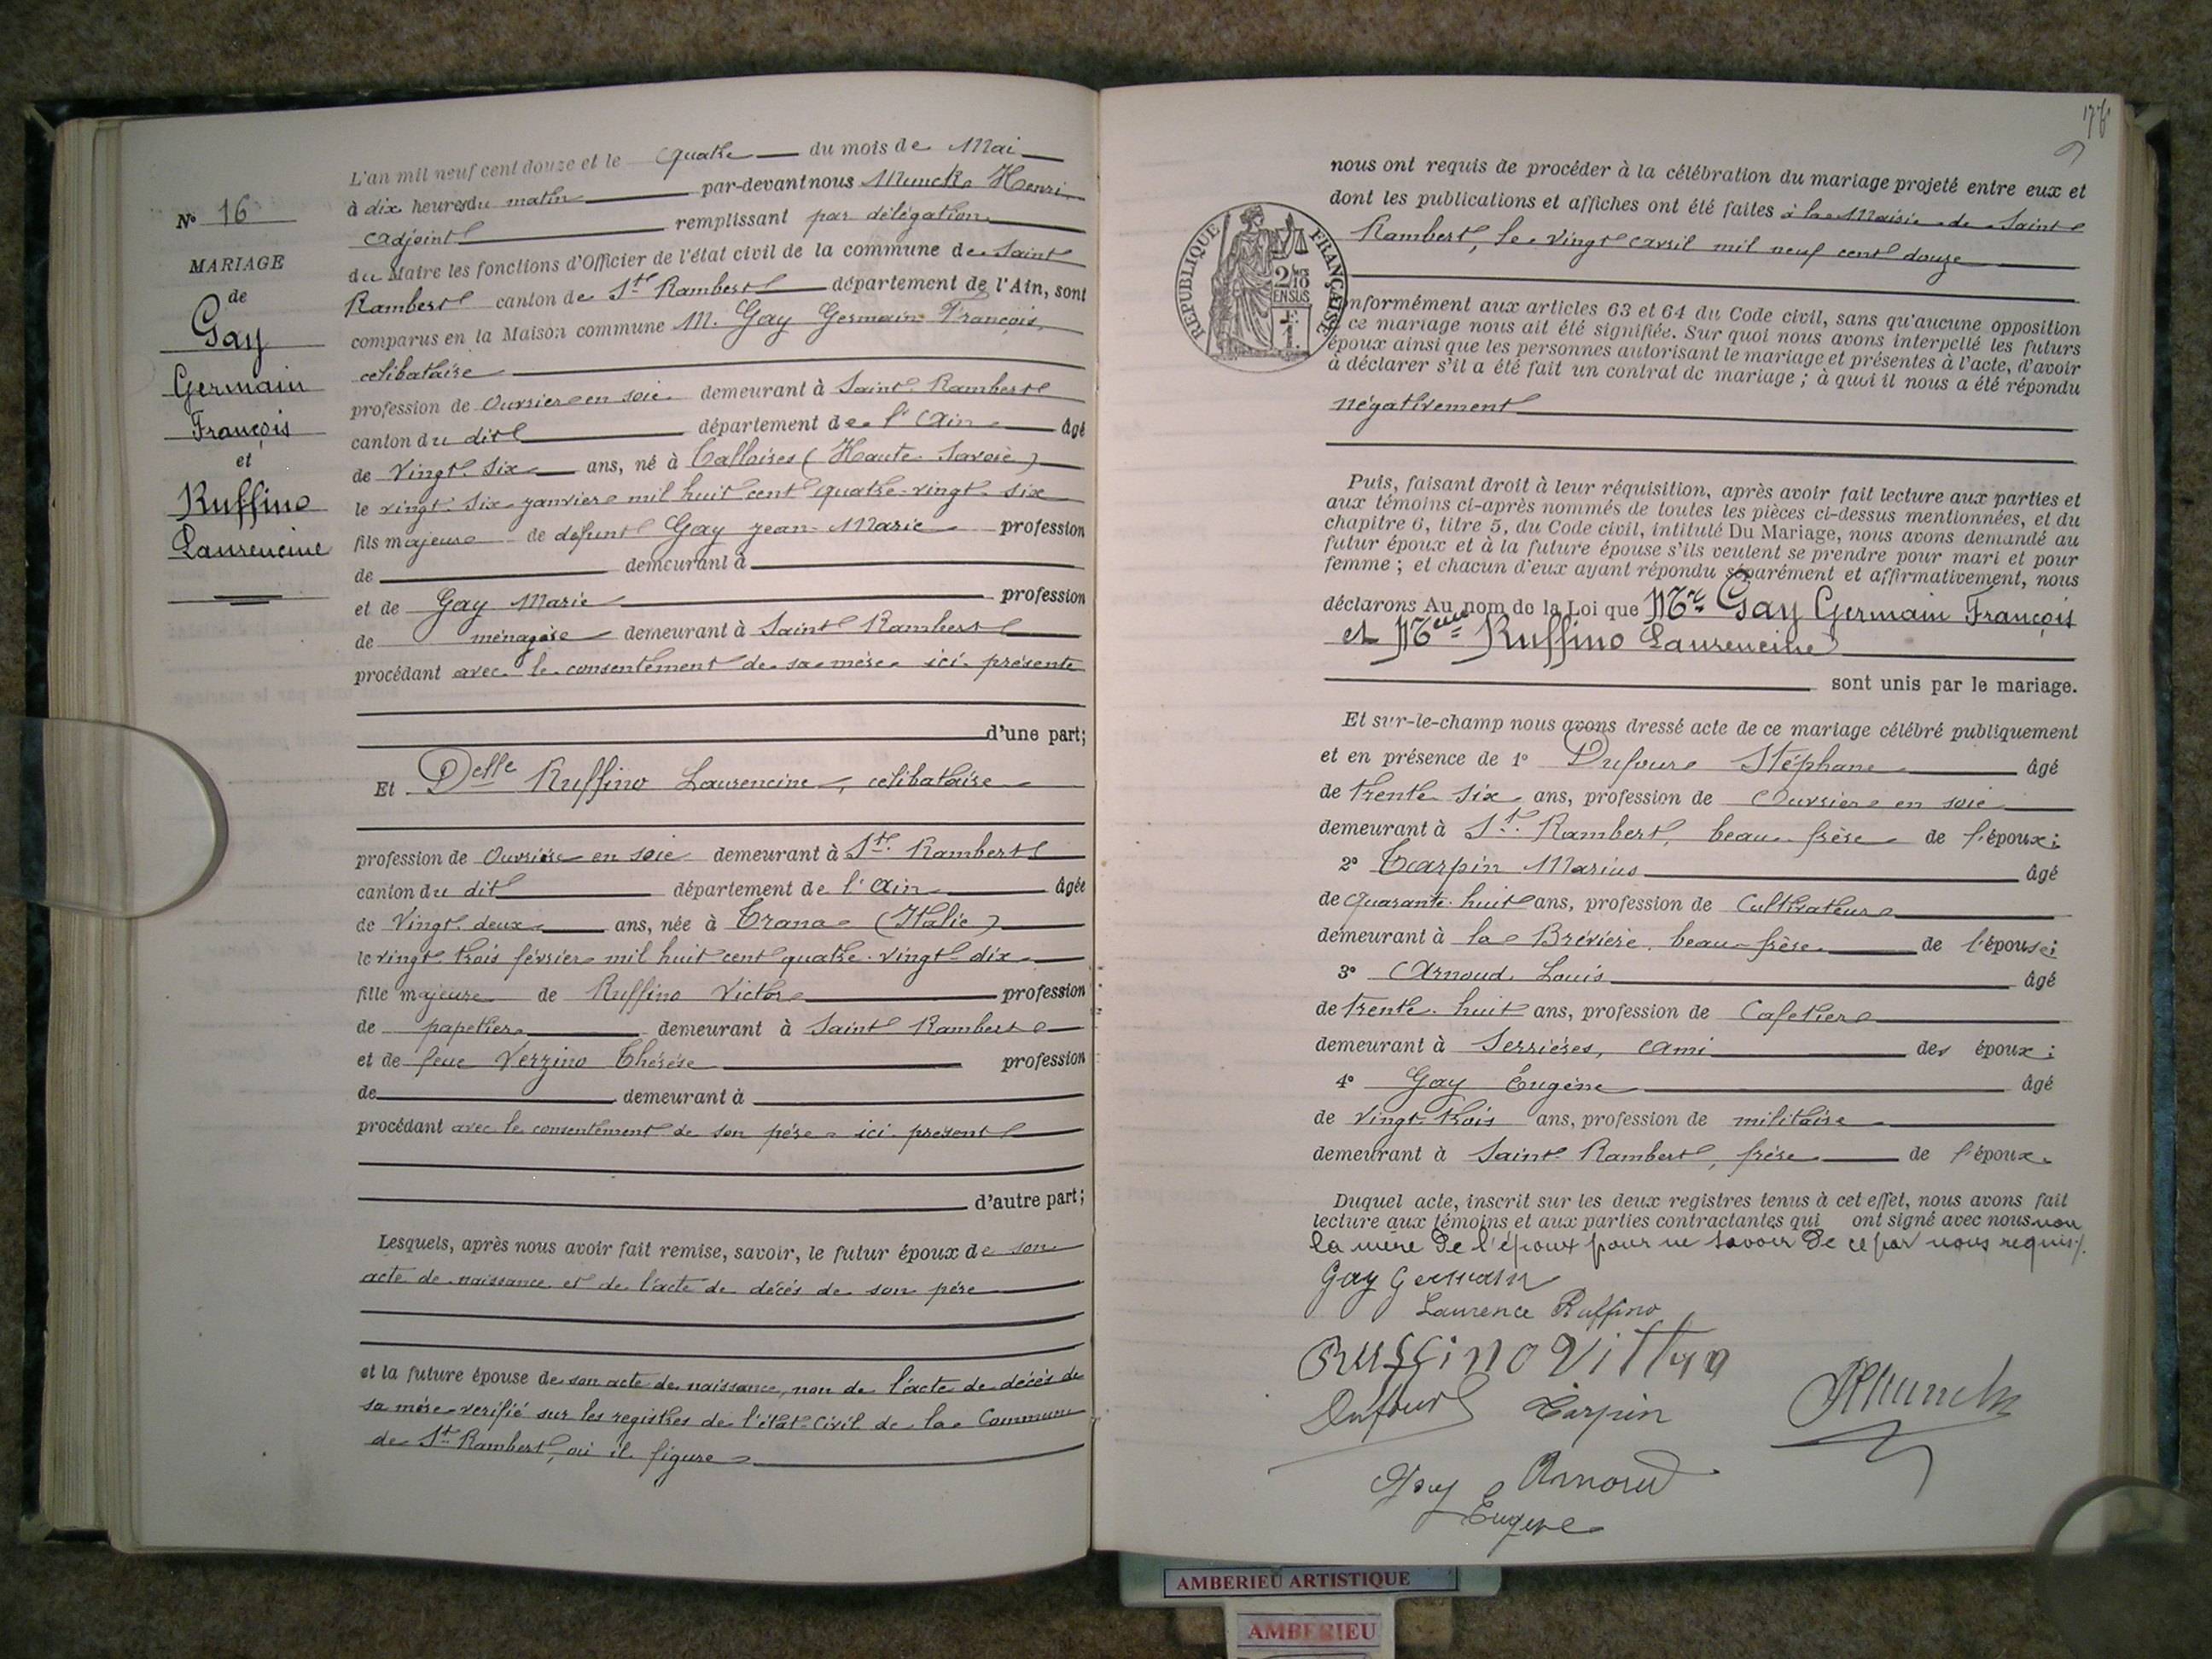 N° 16
MARIAGE
de
Gay
Germain
François
et
Ruffino
Laurencine
L'an mil neuf cent douze et le quatre du mois de Mai
à dix heures du matin par-devant nous Munck Henri
adjoint remplissant par délégation
du Maire les fonctions d'Officier de l'état civil de la commune de Saint
Rambert canton de St Rambert département de l'Ain, sont
comparus en la Maison commune M. Gay Germain François,
celibataire
profession de Ouvrier en soie demeurant à Saint-Rambert
canton du dit département de l'Ain âgé
de Vingt-six ans, né à Talloires (Haute-Savoie)
le vingt-six janvier mil huit cent quatre-vingt-six
fils majeur de défunt Gay Jean-Marie profession
de demeurant à
et de Gay Marie profession
de ménagère demeurant à Saint Rambert
procédant avec le consentement de sa mère ici présente
d'une part;
Et Delle Ruffino Laurencine, celibataire
profession de Ouvrière en soie demeurant à St. Rambert
canton du dit département de l'Ain âgée
de Vingt-deux ans, née à Trana (Italie)
le vingt-trois février mil huit cent quatre-vingt-dix
fille majeure de Ruffino Victor profession
de papetier demeurant à Saint Rambert
et de feue Verzino Thérèse profession
de demeurant à
procédant avec le consentement de son père ici présent
d'autre part;
Lesquels, après nous avoir fait remise, savoir, le futur époux de son
acte de naissance et de l'acte de décès de son père
et la future épouse de son acte de naissance, non de l'acte de décès de
sa mère verifié sur les registres de l'état-Civil de la Commune
de St Rambert, où il figure
nous ont requis de procéder à la célébration du mariage projeté entre eux et
dont les publications et affiches ont été faites à la Mairie de Saint
Rambert, le vingt avril mil neuf cent douze
REPUBLIQUE FRANÇAISE
2/10 EN SUS
1 F.
conformément aux articles 63 et 64 du Code civil, sans qu'aucune opposition
à ce mariage nous ait été signifiée. Sur quoi nous avons interpellé les futurs
époux ainsi que les personnes autorisant le mariage et présentes à l'acte, d'avoir
à déclarer s'il a été fait un contrat de mariage ; à quoi il nous a été répondu
négativement
Puis, faisant droit à leur réquisition, après avoir fait lecture aux parties et
aux témoins ci-après nommés de toutes les pièces ci-dessus mentionnées, et du
chapitre 6, titre 5, du Code civil, intitulé Du Mariage, nous avons demandé au
futur époux et à la future épouse s'ils veulent se prendre pour mari et pour
femme ; et chacun d'eux ayant répondu séparément et affirmativement, nous
déclarons Au nom de la Loi que Mr Gay Germain François
et Melle Ruffino Laurencine
sont unis par le mariage.
Et sur-le-champ nous avons dressé acte de ce mariage célébré publiquement
et en présence de 1° Dufour Stéphane âgé
de trente-six ans, profession de Ouvrier en soie
demeurant à St. Rambert, beau-frère de l'époux;
2° Tarpin Marius âgé
de quarante-huit ans, profession de Cultivateur
demeurant à la Brévière, beau-frère de l'épouse;
3° Arnoud Louis âgé
de trente-huit ans, profession de Cafetier
demeurant à Serrières, ami des époux;
4° Gay Eugène âgé
de vingt-trois ans, profession de militaire
demeurant à Saint-Rambert, frère de l'époux.
Duquel acte, inscrit sur les deux registres tenus à cet effet, nous avons fait
lecture aux témoins et aux parties contractantes qui ont signé avec nous non
la mère de l'époux pour ne savoir de ce par nous requis.
Gay Germain
Laurence Ruffino
Ruffino Vittorio
Dufour Tarpin HMunck
Gay Arnoud
Eugene
AMBERIEU ARTISTIQUE
AMBERIEU